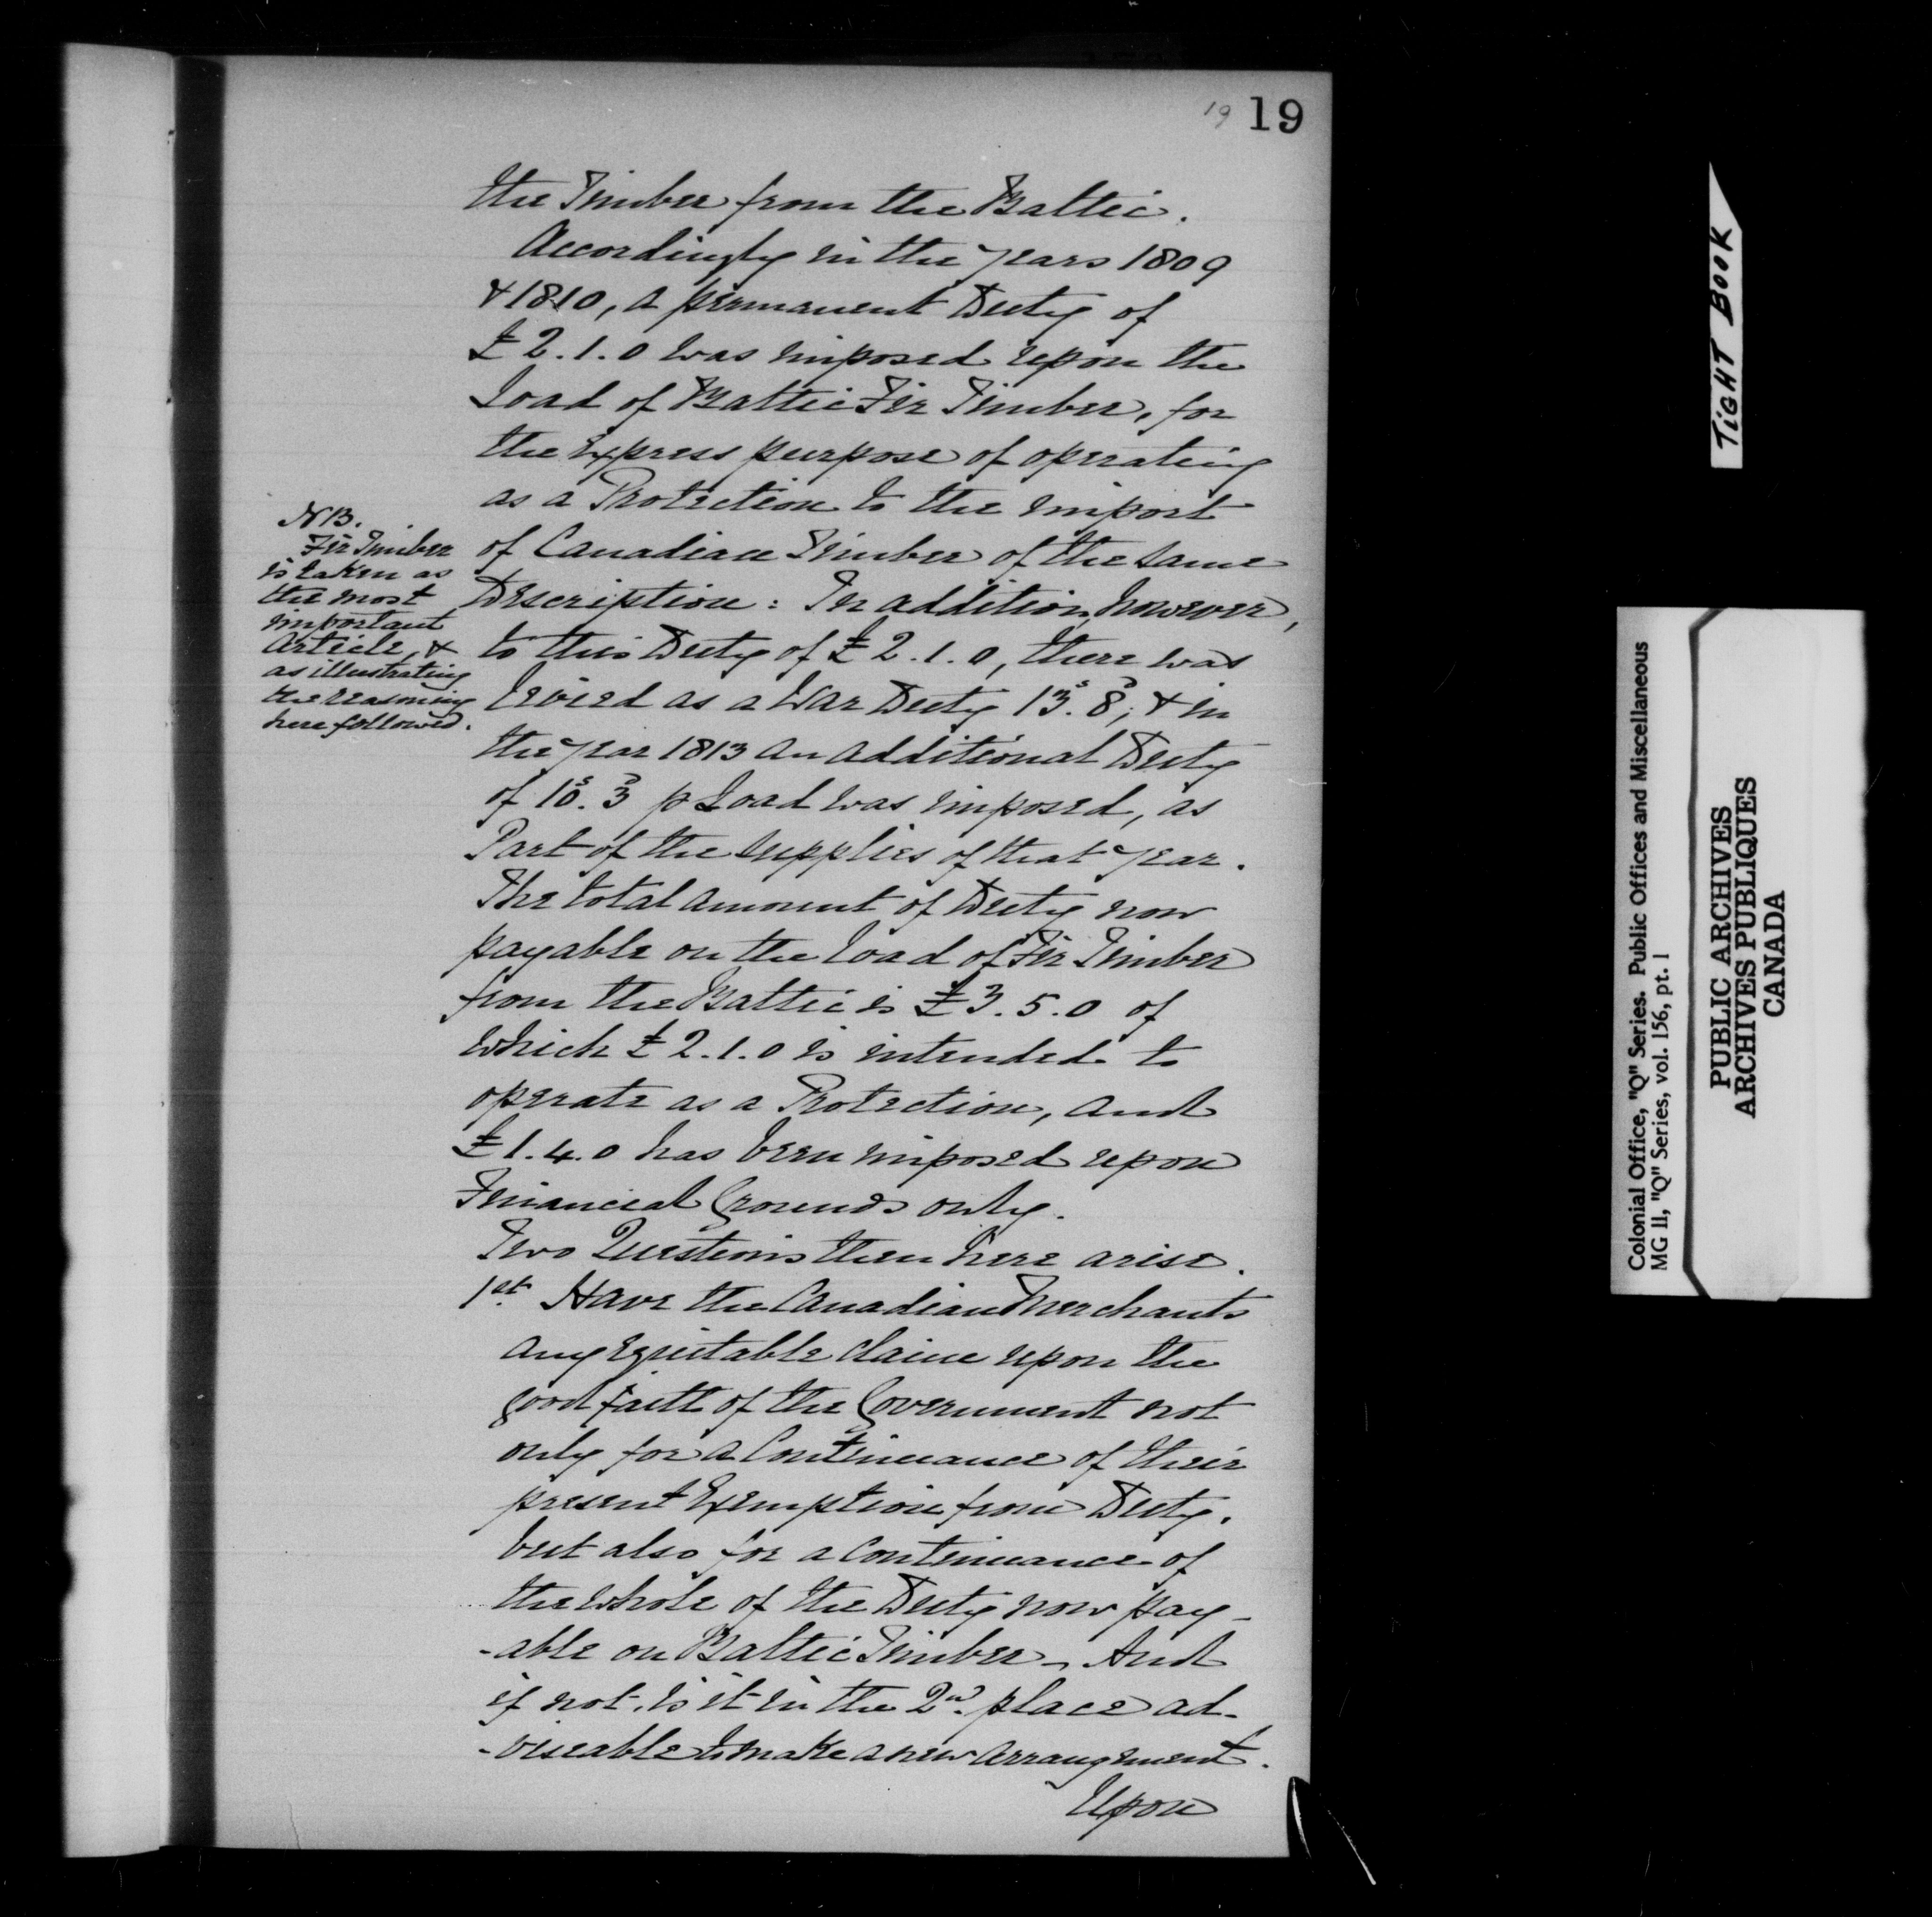 19 19
the Timber from the Baltic.
Accordingly in the years 1809
& 1810, a permanent Duty of
£2.1.0 was imposed upon the
Load of Baltic Fir Timber, for
the express purpose of operating
as a Protection to the import
of Canadian Timber of the same
Description: In addition, however,
to this Duty of £2.1.0, there was
levied as a War Duty 13s. 8d; & in
the year 1813 an additional Duty
of 10s. 3d p Load was imposed, as
Part of the supplies of that year.
The total amount of Duty now
payable on the load of Fir Timber
from the Baltic is £3.5.0 of
which £2.1.0 is intended to
operate as a Protection, and
£1.4.0 has been imposed upon
Financial Grounds only.
Two Questions then here arise.
1st. Have the Canadian Merchants
any equitable claim upon the
good faith of the Government not
only for a Continuance of their
present Exemption from Duty,
but also for a Continuance of
the whole of the Duty now pay-
-able on Baltic Timber - And
if not, is it in the 2nd. place ad-
-viseable to make a new arrangment.
Upon
NB.
Fir Timber
is taken as
the most
important
article, &
as illustrating
the reasoning
here followed.
TIGHT BOOK
Colonial Office, "Q" Series. Public Offices and Miscellaneous
MG 11, "Q" Series, vol. 156, pt. 1
PUBLIC ARCHIVES
ARCHIVES PUBLIQUES
CANADA